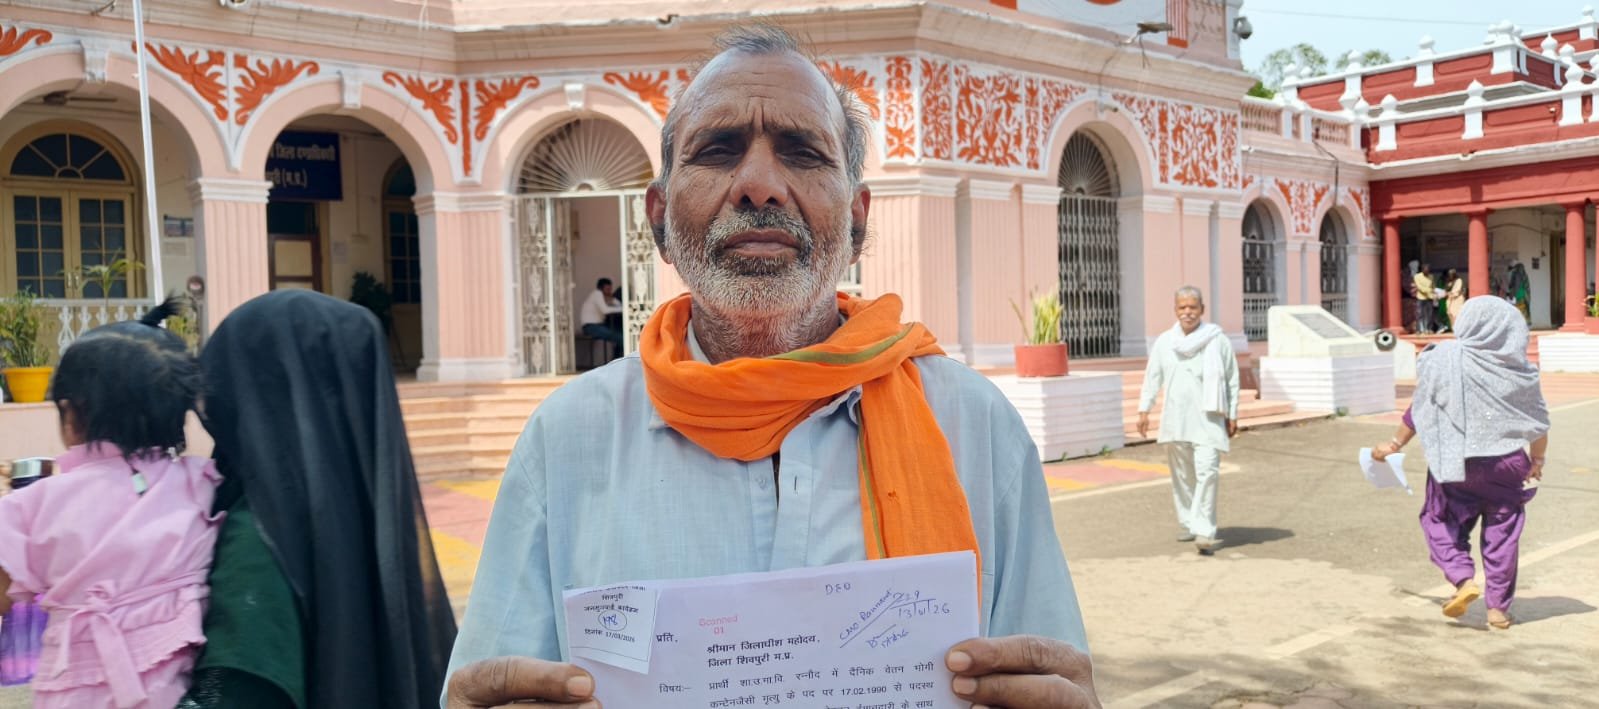 जिला दण्डाधिकारी
पुरी (म.प्र.)
शिवपुरी
जनसुनवाई कार्यक्रम
198
दिनांक 17/03/2026
Scanned
01
DEO
CMO Rannod
प्रति,
श्रीमान जिलाधीश महोदय,
जिला शिवपुरी म.प्र.
विषय:— प्रार्थी शा.उ.मा.वि. रन्नौद में दैनिक वेतन भोगी
कन्टेनजैंसी मृत्यु के पद पर 17.02.1990 से पदस्थ
के साथ